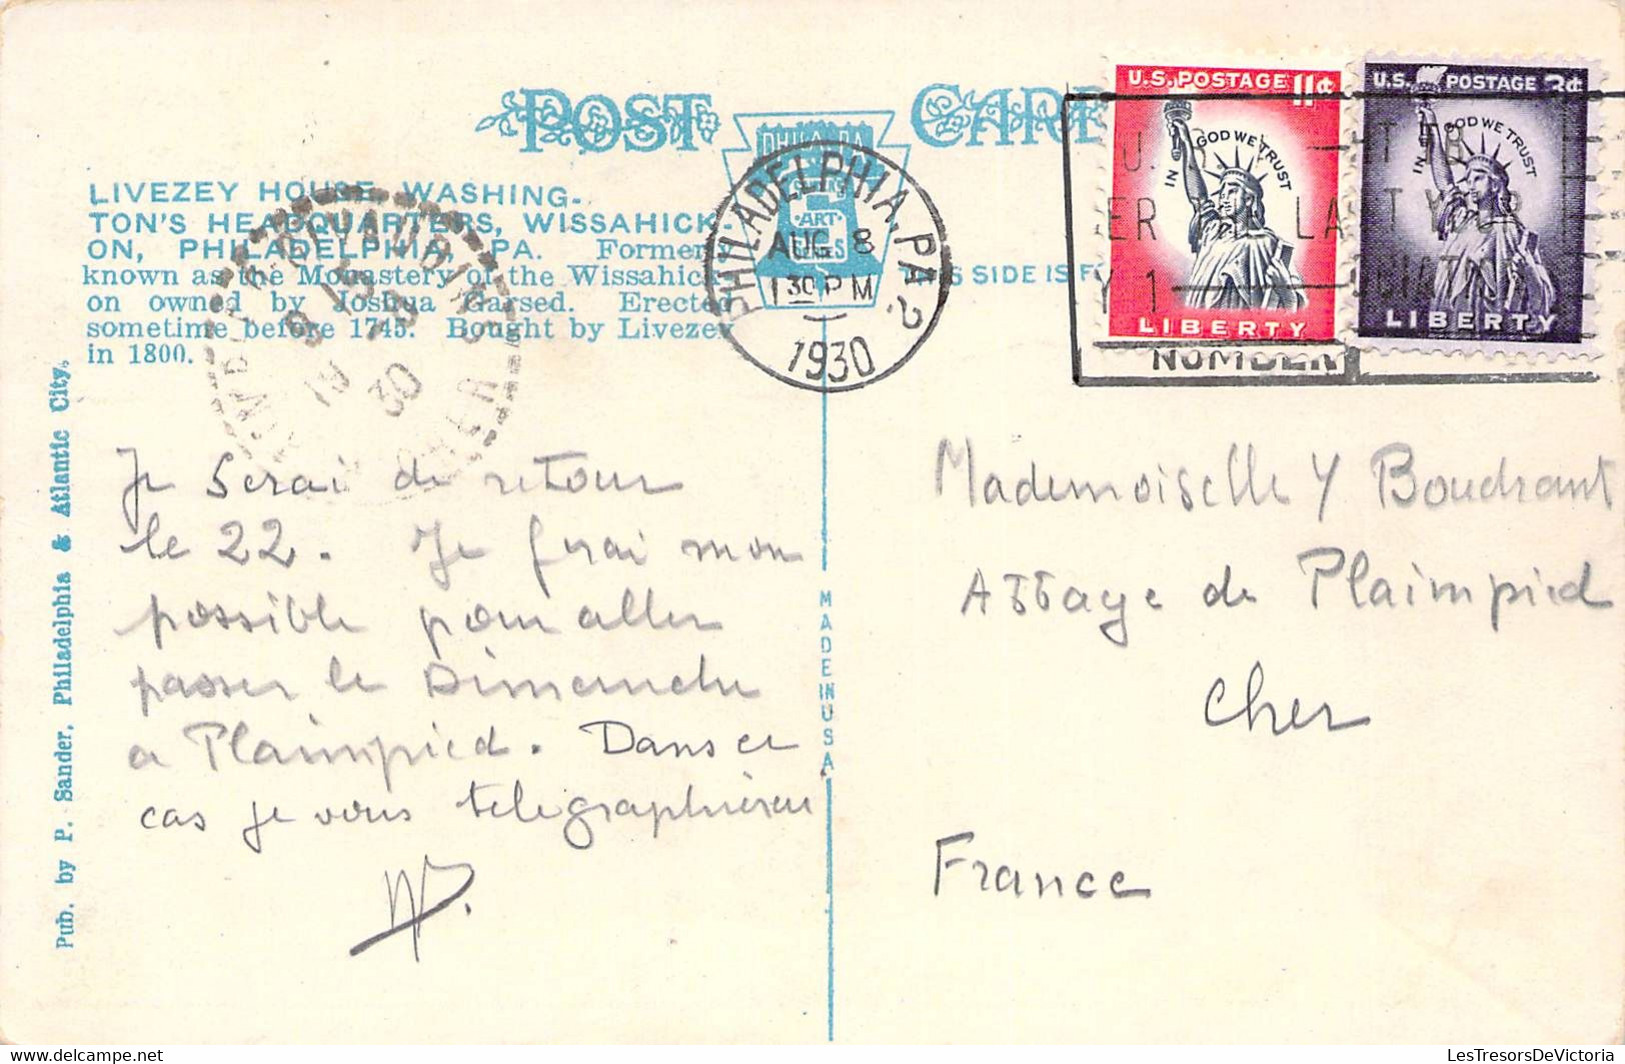 POST CARD
LIVEZEY HOUSE, WASHING-
TON'S HEADQUARTERS, WISSAHICK-
ON, PHILADELPHIA, PA. Formerly
known as the Monastery of the Wissahick-
on owned by Joshua Garsed. Erected
sometime before 1745. Bought by Livezey
in 1800.
Pub. by P. Sander, Philadelphia & Atlantic City.
ART
PHILADELPHIA, PA. 2
AUG 8
1 30 P M
1930
THIS SIDE IS
U.S. POSTAGE 11¢
IN GOD WE TRUST
LIBERTY
U.S. POSTAGE 3¢
IN GOD WE TRUST
LIBERTY
NUMBER
30
MADE IN USA
Je serai de retour
le 22. Je ferai mon
possible pour aller
passer le Dimanche
a Plaimpied. Dans ce
cas je vous telegraphierai
Mademoiselle Y Boudrant
Abbaye de Plaimpied
Cher
France
LesTresorsDeVictoria.com